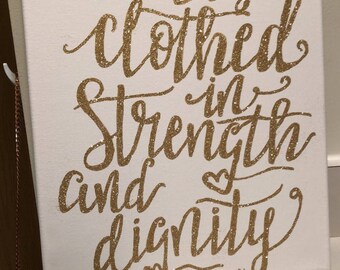 clothed
in
Strength
and
dignity